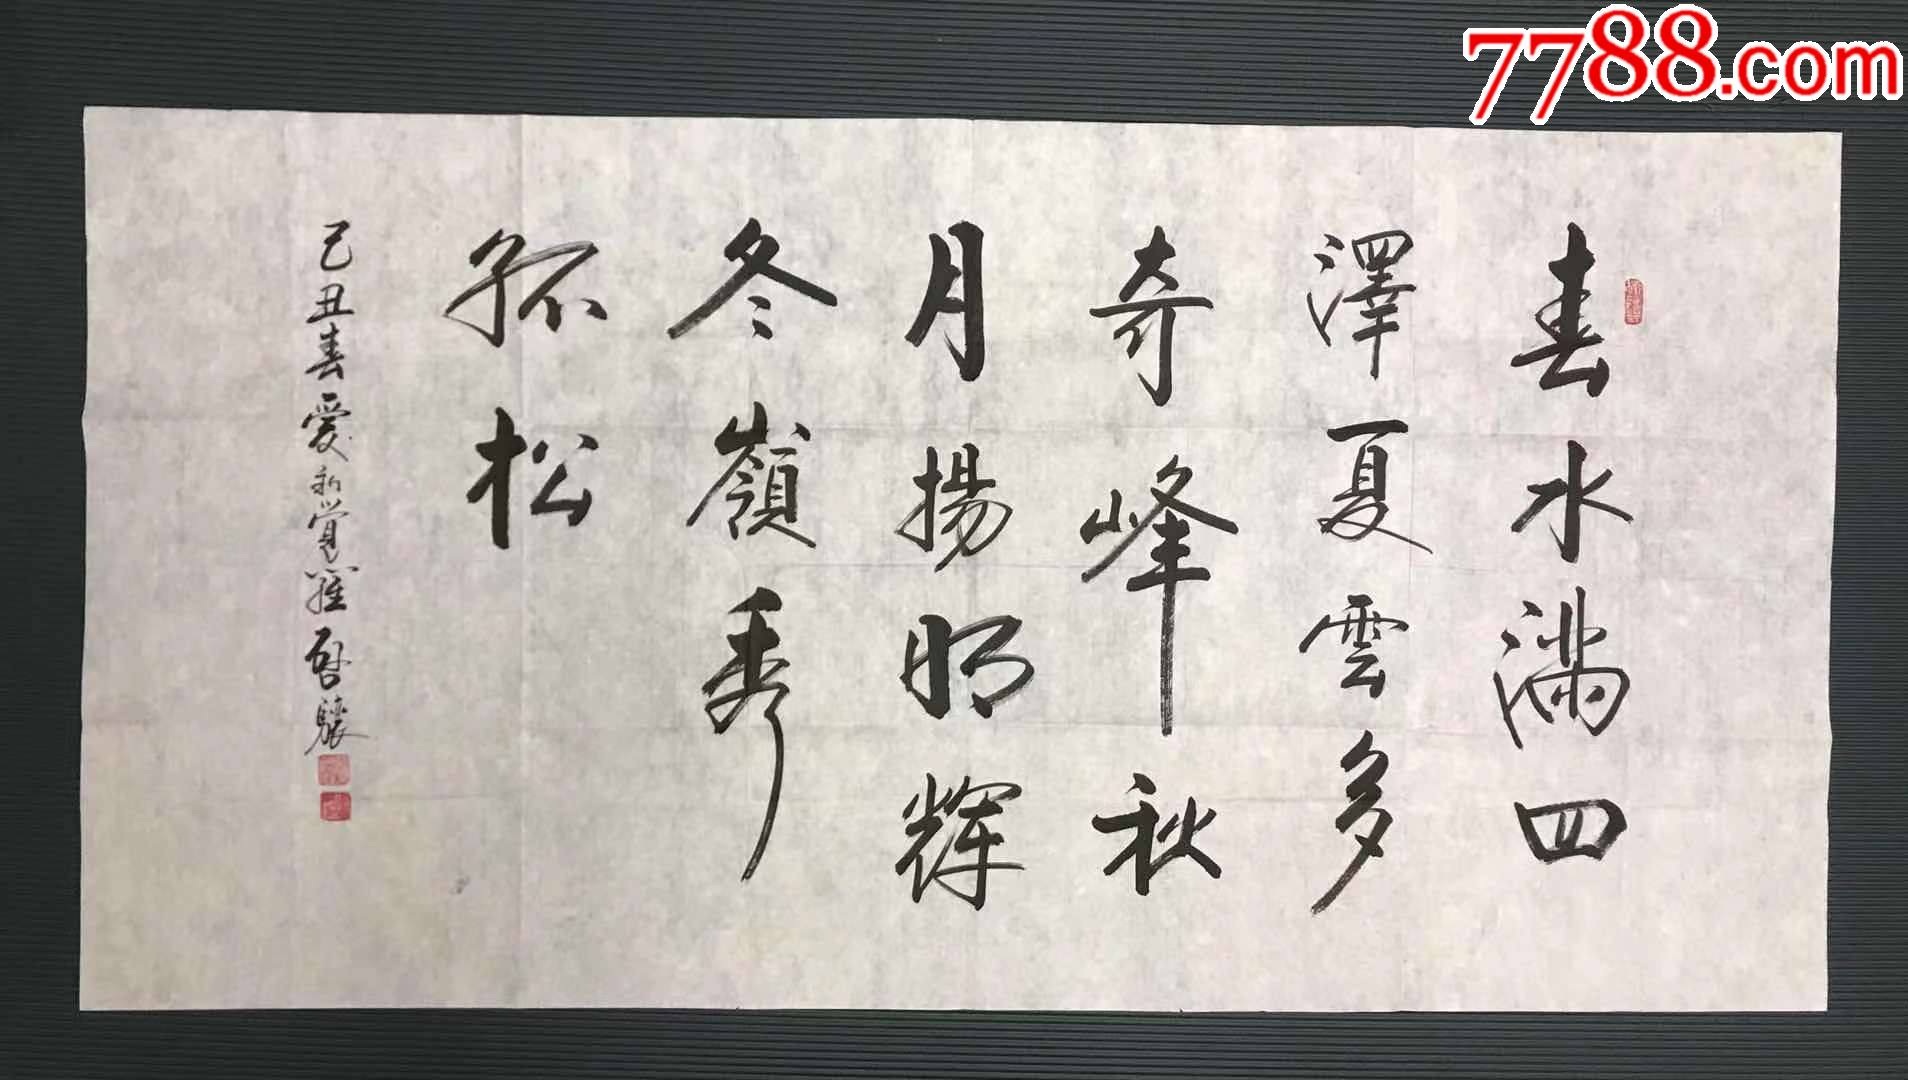 7788.com
春水滿四
澤夏雲多
奇峰秋
月揚明輝
冬嶺秀
孤松
己丑春愛新覺羅啓驤